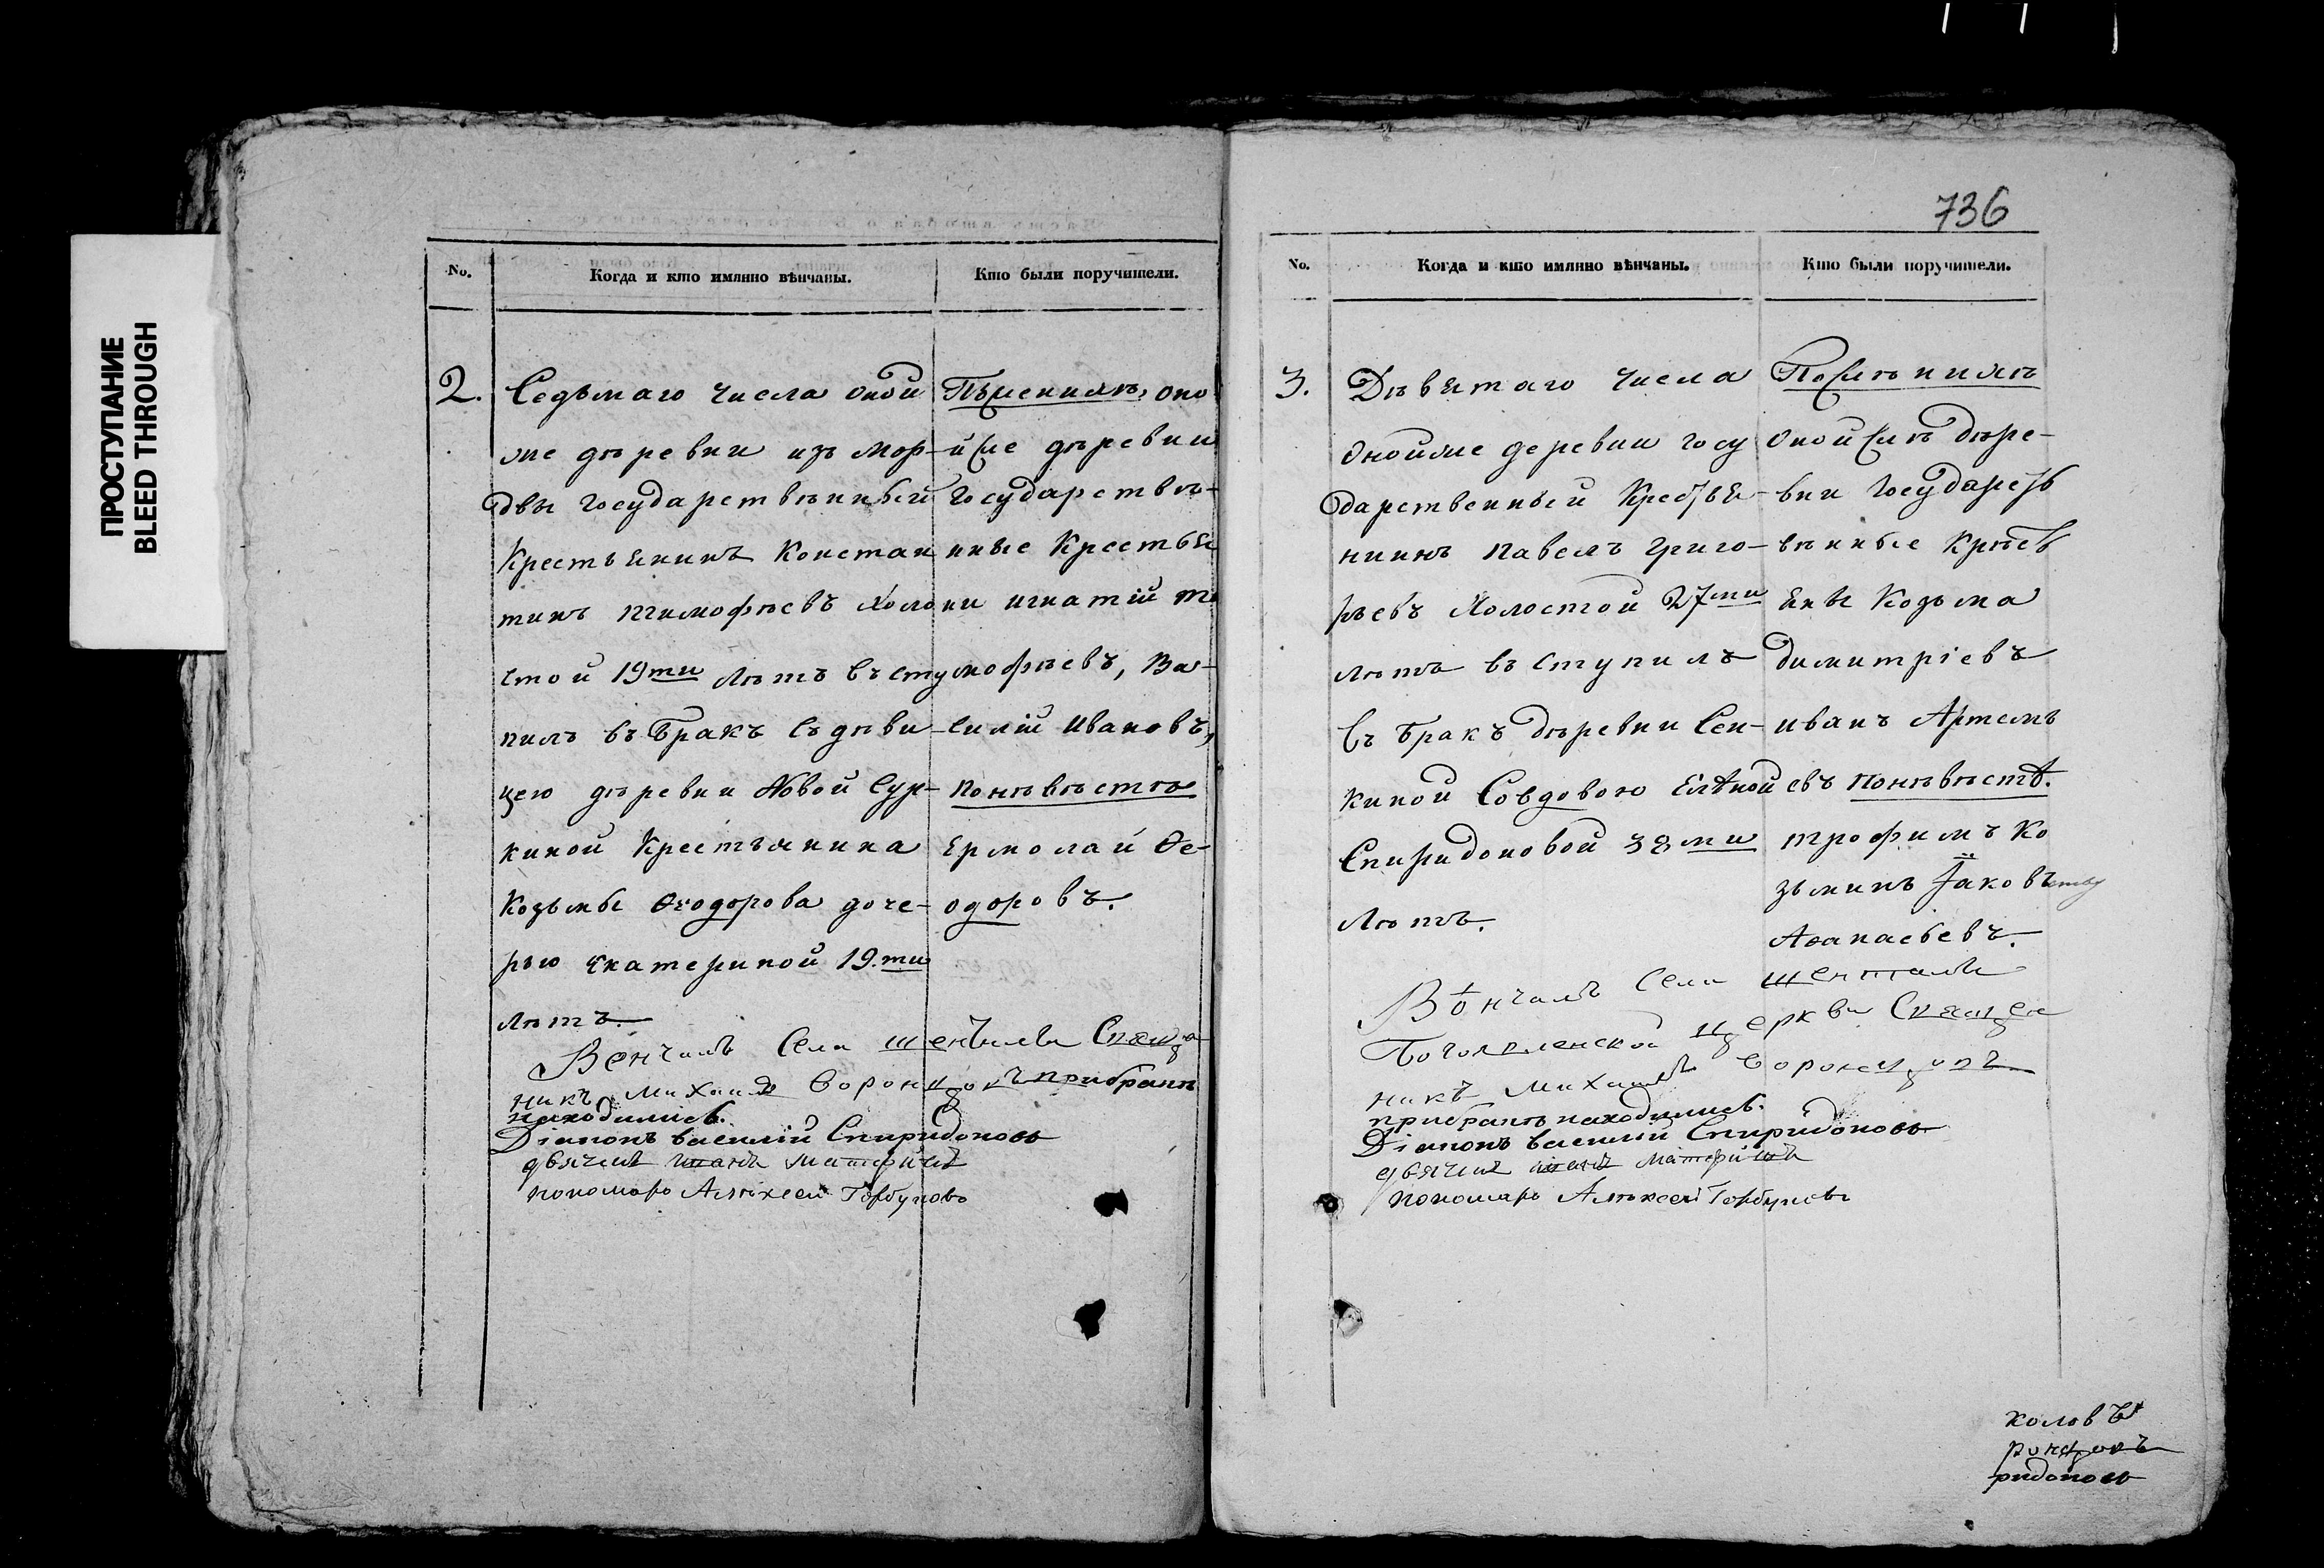 ПРОСТУПАНИЕ
BLEED THROUGH
No.
Когда и кто имянно вѣнчаны.
Кто были поручители.
2.
Седьмаго числа оной
же дѣревни изъ мор-
двы государствѣнный
Крестьянинъ Констан
тинъ тимофѣевъ Холо
стой 19ти лѣтъ всту
пилъ въ бракъ съ дѣви
цею дѣревни Новой Сур-
киной Крестьянина
Козьмы Ѳеодорова доче-
рью Екатериной 19.ти
лѣтъ.
оно
йже дѣревни
Государствѣ-
нные Крестья
ни игнатій ти
мофѣевъ, Ва-
силій Ивановъ,
понѣвѣстѣ
Ермолай Ѳе-
одоровъ.
Венчалъ Села шенталы Священ
никъ Михаилъ Воронцовъ прибракѣ
находились.
Діаконъ василій Спиридоновъ
дьячекъ
пономарь Алѣксей Горбуновъ
736
No.
Когда и кто имянно вѣнчаны.
Кто были поручители.
3.
Дѣвятаго числа
Онойже деревни госу
дарственный Крестья-
нинъ павелъ григо-
рьевъ Холостой 27ми
лѣтъ вступилъ
въ бракъ дѣревни Сен-
киной Совдовою Елѣной
Спиридоновой 38ми
лѣтъ.
Пожѣнихѣ
Онойжѣ дѣре-
вни Государст
вѣнные Крѣсть
янѣ Козьма
димитріевъ
иванъ Артемь
евъ понѣвѣстѣ.
трофимъ Ко
зьминъ Іаковъ
Аѳанасьевъ.
Вѣнчалъ Села шенталы
Богоявленской церкви Священ
никъ Михаилъ Воронцовъ
прибракѣ находились.
Діаконъ василій Спиридоновъ
дьячекъ
пономарь Алѣксей Горбуновъ
коловъ
ронцовъ
ридоновъ